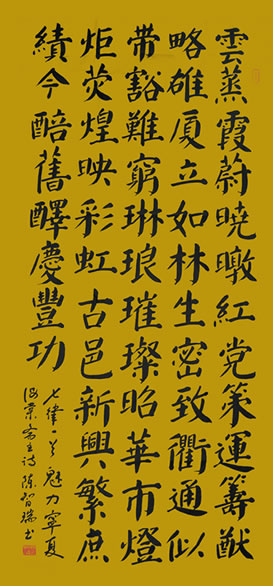 雲蒸霞蔚曉暾紅党策運籌猷
略雄厦立如林生密致衢通似
带豁難窮琳琅璀璨昭華市燈
炬荧煌映彩虹古邑新興繁庶
績今醅舊醳慶豐功
七律一首魅力寧夏
齋主诗陈智瑞书